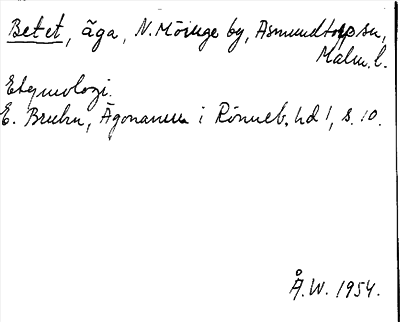 Betet, äga, N. Möinge by, Asmundtorp sn,
Malm. l.
Etymologi.
E. Bruhn, Ägonamn i Rönneb. hd 1, s. 10.
Å.W. 1954.